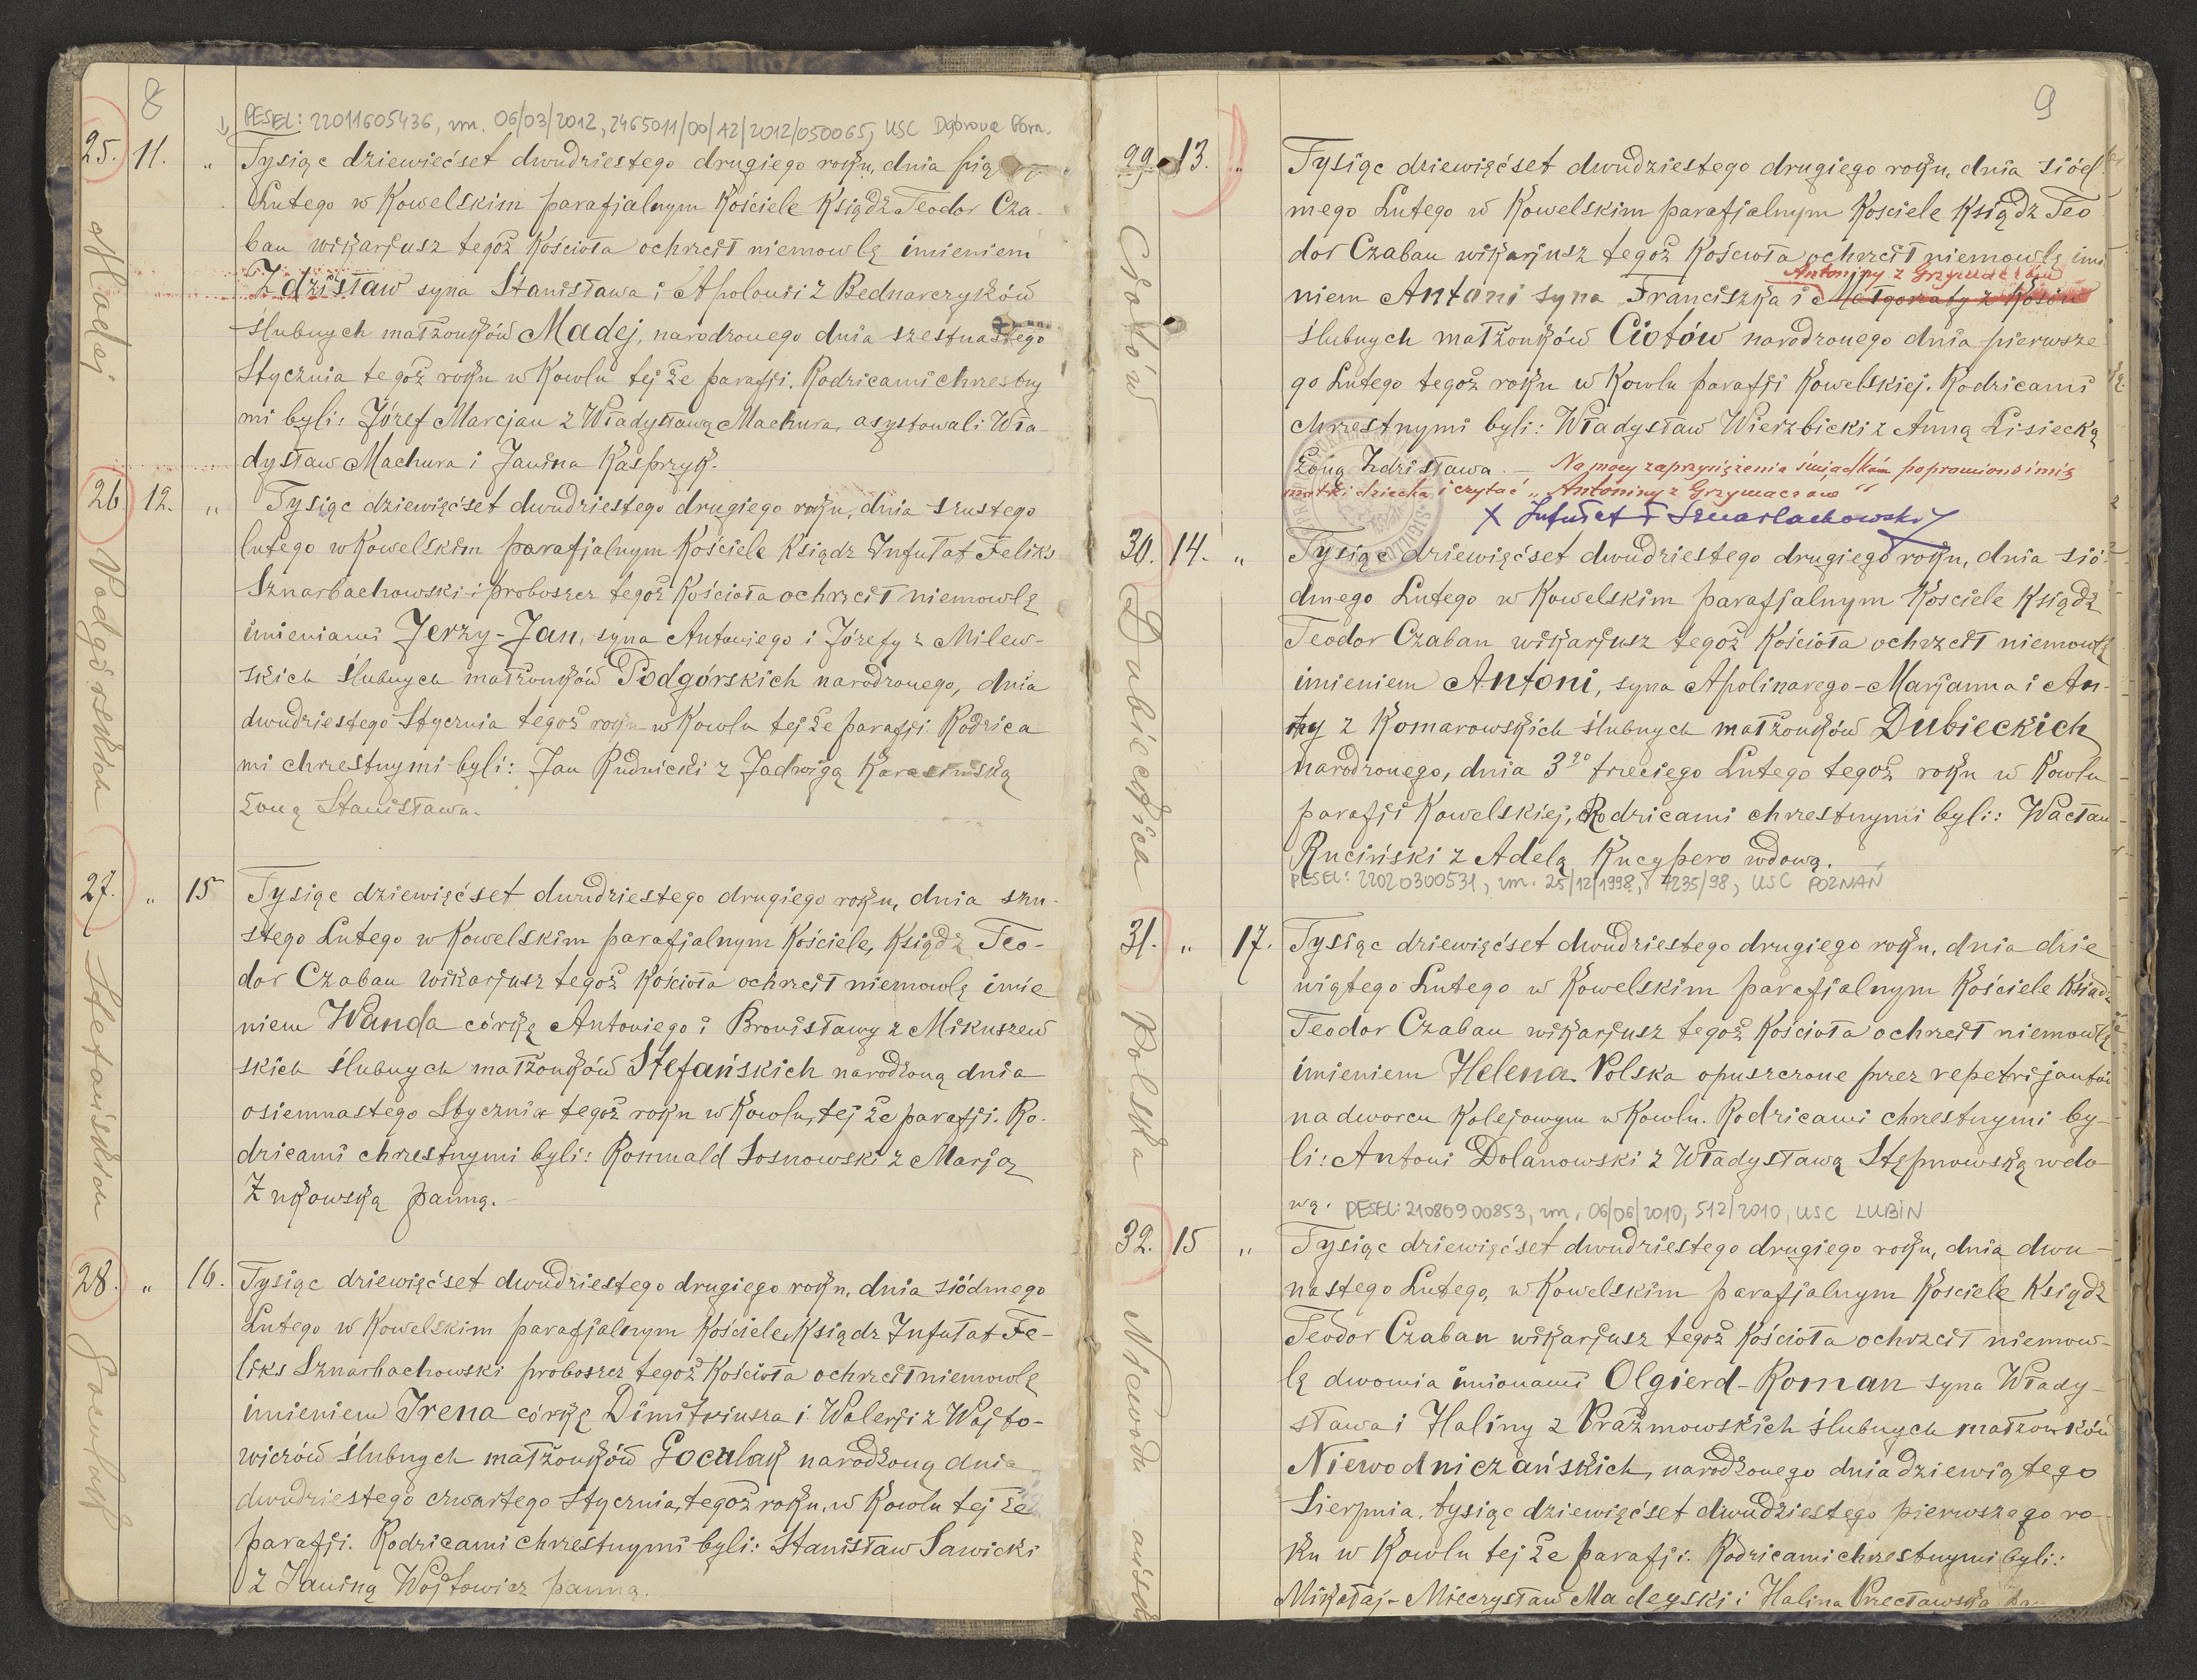 8
PESEL: 22011605436, zm. 06/03/2012, 2465011/00/AZ/2012/050065, USC Dąbrowa Górn.
25. 11. „ Tysiąc dziewiećset dwudziestego drugiego roku, dnia
Lutego w Kowelskim parafjalnym Kościele Ksiądz Teodor Cza-
ban wikarjusz tegoż Kościoła ochrzcił niemowlę imieniem
Zdzisław syna Stanisława i Apolonii z Bednarczyków
ślubnych małżonków Madej, narodzonego dnia szesnastego
Stycznia tegoż roku w Kowlu tejże parafji. Rodzicami chrzestny
mi byli: Józef Marcjan z Władysławą Machura, asystowali Wła-
dysław Machura i Janina Kasprzyk.
Madej
26. 12. „ Tysiąc dziewięćset dwudziestego drugiego roku, dnia szustego
lutego w Kowelskim parafjalnym Kościele Ksiądz Infułat Feliks
Sznarbachowski i proboszcz tegoż Kościoła ochrzcił niemowlę
imieniami Jerzy-Jan, syna Antoniego i Józefy z Milew-
skich ślubnych małżonków Podgórskich narodzonego, dnia
dwudziestego Stycznia tegoż roku w Kowlu tejże parafji. Rodzica
mi chrzestnymi byli: Jan Rudnicki z Jadwigą
żoną Stanisława.
Podgórskich
27. „ 15 Tysiąc dziewięćset dwudziestego drugiego roku, dnia szu-
stego Lutego w Kowelskim parafjalnym Kościele, Ksiądz Teo-
dor Czaban wikarjusz tegoż Kościoła ochrzcił niemowlę imie
niem Wanda córkę Antoniego i Bronisławy z Mikuszew
skich ślubnych małżonków Stefańskich narodzoną dnia
osiemnastego Stycznia tegoż roku w Kowlu, tejże parafji. Ro-
dzicami chrzestnymi byli: Romuald Sosnowski z Marją
Żukowską panną.
Stefańskich
28. „ 16. Tysiąc dziewięćset dwudziestego drugiego roku, dnia siódmego
Lutego w Kowelskim parafjalnym Kościele Ksiądz Infułat Fe-
liks Sznarbachowski proboszcz tegoż Kościoła ochrzcił niemowlę
imieniem Irena córkę Dimitriusza i Walerji z Wojto-
wiczów ślubnych małżonków Goculak narodzoną dnia
dwudziestego czwartego Stycznia, tegoż roku, w Kowlu tejże
parafji. Rodzicami chrzestnymi byli: Stanisław Sawicki
z Janiną Wojtowicz panną.
Goculak
9
29. 13. „ Tysiąc dziewięćset dwudziestego drugiego roku, dnia siód-
mego Lutego w Kowelskim parafjalnym Kościele Ksiądz Teo
dor Czaban wikarjusz tegoż Kościoła ochrzcił niemowlę imi
Antoniny z Grzymaczów
niem Antoni syna Franciszka i Małgorzaty z Kosów
ślubnych małżonków Ciołów narodzonego dnia pierwsze
go Lutego tegoż roku w Kowlu parafji Kowelskiej. Rodzicami
chrzestnymi byli: Władysław Wierzbicki z Anną Lisiecką
żoną Zdzisława. — Na mocy zaprzysiężenia świadków poprawiono imię
matki dziecka i czytać „Antoniny z Grzymaczów"
X Infułat F Sznarbachowski
Ciołów
30. 14. „ Tysiąc dziewięćset dwudziestego drugiego roku, dnia sió-
dmego Lutego w Kowelskim parafjalnym Kościele Ksiądz
Teodor Czaban wikarjusz tegoż Kościoła ochrzcił niemowlę
imieniem Antoni, syna Apolinarego-Marjanna i An-
ny z Komarowskich ślubnych małżonków Dubieckich
narodzonego, dnia 3go trzeciego Lutego tegoż roku w Kowlu
parafji Kowelskiej, Rodzicami chrzestnymi byli: Wacław
Ruciński z Adelą Kucypero wdową.
PESEL: 22020300531, zm. 25/12/1998, 4235/98, USC POZNAŃ
31. „ 17. Tysiąc dziewięćset dwudziestego drugiego roku, dnia dzie
wiątego Lutego w Kowelskim parafjalnym Kościele Ksiądz
Teodor Czaban wikarjusz tegoż Kościoła ochrzcił niemowlę
imieniem Helena Polska opuszczone przez repetrijantów
na dworcu Kolejowym w Kowlu. Rodzicami chrzestnymi by-
li: Antoni Dolanowski z Władysławą Stępnowską wdo-
wą. PESEL: 21080900853, zm. 06/06/2010, 512/2010, USC LUBIN
Polska
32. 15 „ Tysiąc dziewięćset dwudziestego drugiego roku, dnia dwu-
nastego Lutego, w Kowelskim parafjalnym Kościele Ksiądz
Teodor Czaban wikarjusz tegoż Kościoła ochrzcił niemow-
lę dwomia imionami Olgierd-Roman syna Włady-
sława i Haliny z Prażmowskich ślubnych małżonków
Niewodniczańskich, narodzonego dnia dziewiątego
Sierpnia, tysiąc dziewięćset dwudziestego pierwszego ro-
ku w Kowlu tejże parafji. Rodzicami chrzestnymi byli:
Mikołaj-Mieczysław Madeyski i Halina Przecławska